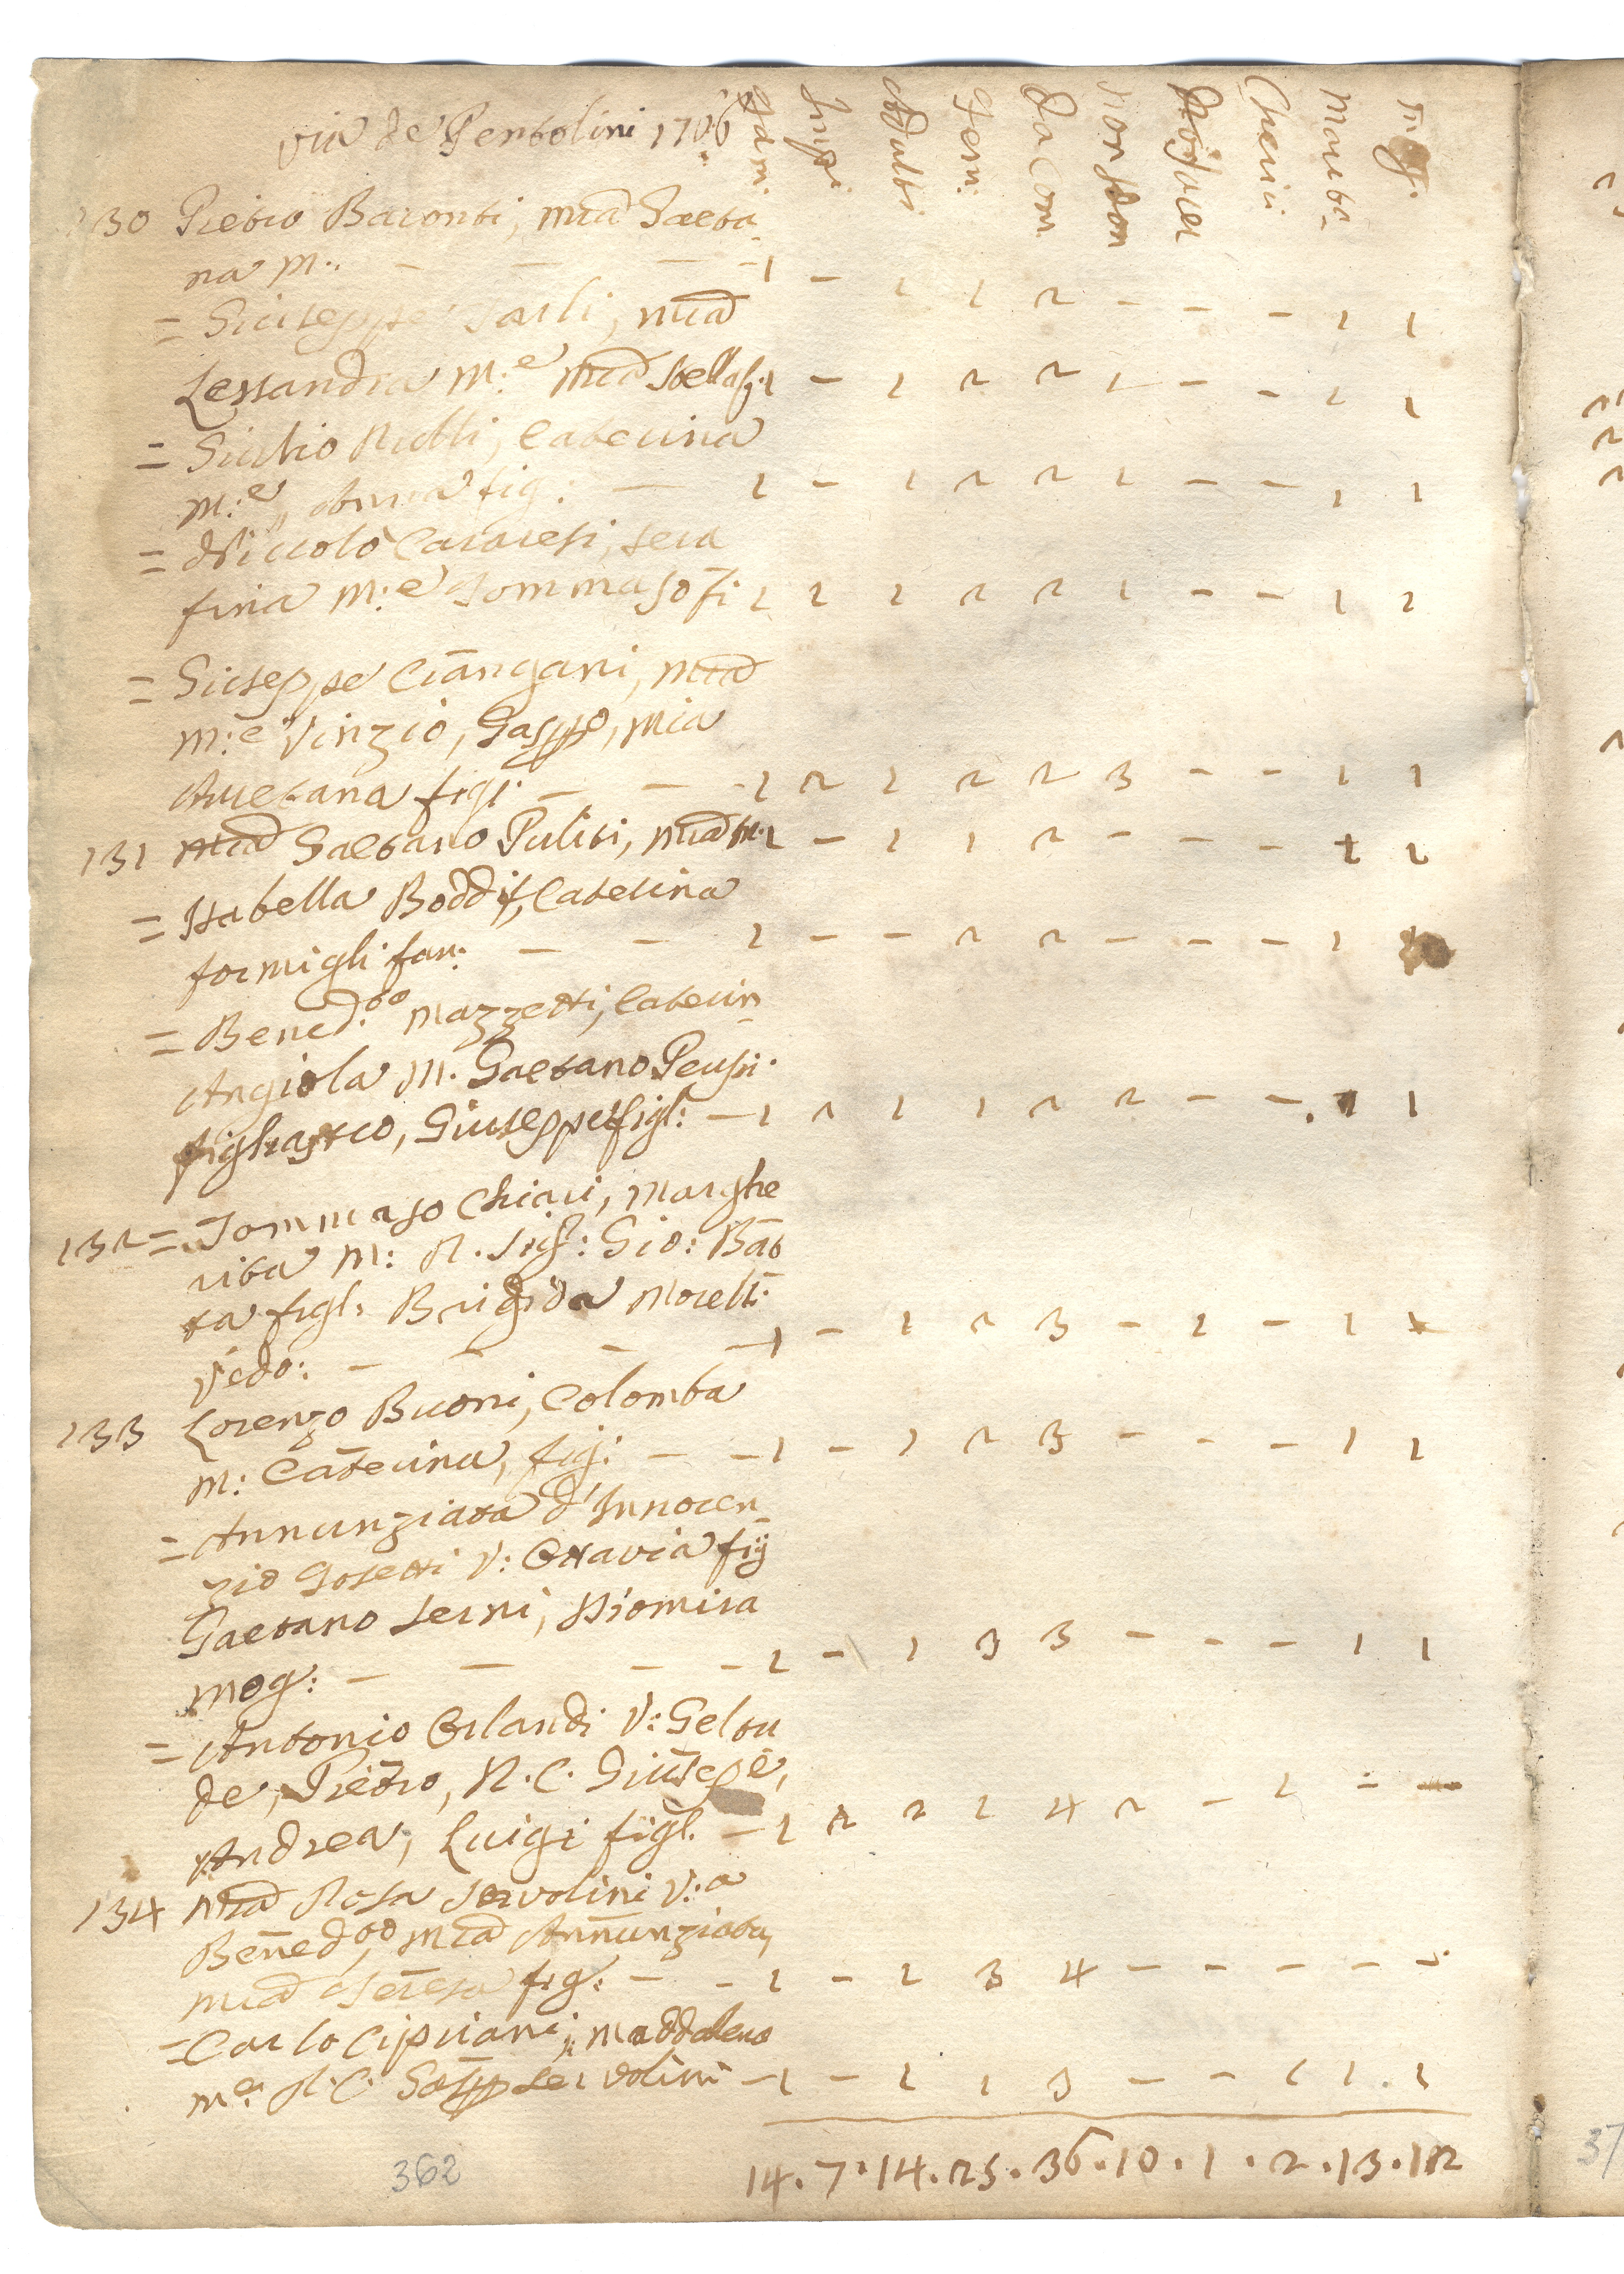 via de Pentolini 1706 fam:
Inf: Adulti fem: Da Com Non Com Chierici Mariti Mogl:
130 Pietro Baronti, Mia Gaeta
na M: - - - - 1 - 1 1 2 - - - 1 1
= Giuseppe Carli, Mia
Lessandra M:e Mia Stella f: 1 - 1 2 2 1 - - 1 1
= Giulio Nutti, Caterina
M:e, Anna fig: - 1 - 1 2 2 1 - - 1 1
= Niccolò Cavaresi, Sera
fina M:e Tommaso fi 1 1 1 2 2 1 - - 1 1
= Giuseppe Ciangani, Mia
M:e Vinzio, Gasppo, Mia
Anetana figl: - - - 1 2 1 2 2 3 - - 1 1
131 Mia Gaetano Puliti, Mia M: 1 - 1 1 2 - - - 1 1
= Isabella Boddi, Caterina
formigli fan: - - 1 - - 2 2 - - - 1
= Bened:to Mazzetti, Caterin
Angiola M. Gaetano Peusi
figliastro, Giuseppe figl: - 1 2 1 1 2 2 - - 1 1
132 = Tommaso Chiari, Marghe
rita M: R. Sig: Gio: Bat
ta figl: Brigida Morelli
vedo: - - - - 1 - 1 2 3 - 1 - 1
133 Lorenzo Buoni, Colomba
M: Caterina, fig: - - 1 - 1 2 3 - - - 1 1
= Annunziata d'Innocen
zio Gosetti V: Ottavia fig
Gaetano Serni, Diomira
mog: - - - - 1 - 1 3 3 - - - 1 1
= Antonio Orlandi V: Geltru
de, Pietro, N.C. Giusepe,
Andrea, Luigi figl. - 1 2 2 1 4 2 - 1 - -
134 Mia Rosa Servolini V:a
Bened:to, Mia Annunziata,
Mia Teresa fig: - - 1 - 1 3 4 - - - - -
= Carlo Cipriani, Maddalena
M:e N.C. Gaspp Servolini - 1 - 1 1 3 - - 1 1 . 1
14 . 7 . 14 . 25 . 36 . 10 . 1 . 2 . 13 . 12
362
37